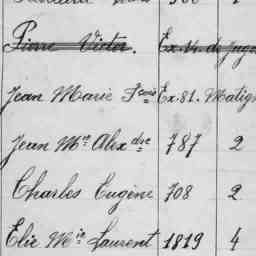 Pierre Victor. Ex. 14. de Juge
Jean Marie Fcois Ex. 81. Matig
Jean Mie Alexdre 787 2
Charles Eugène 708 2
Elie Mie Laurent 1819 4